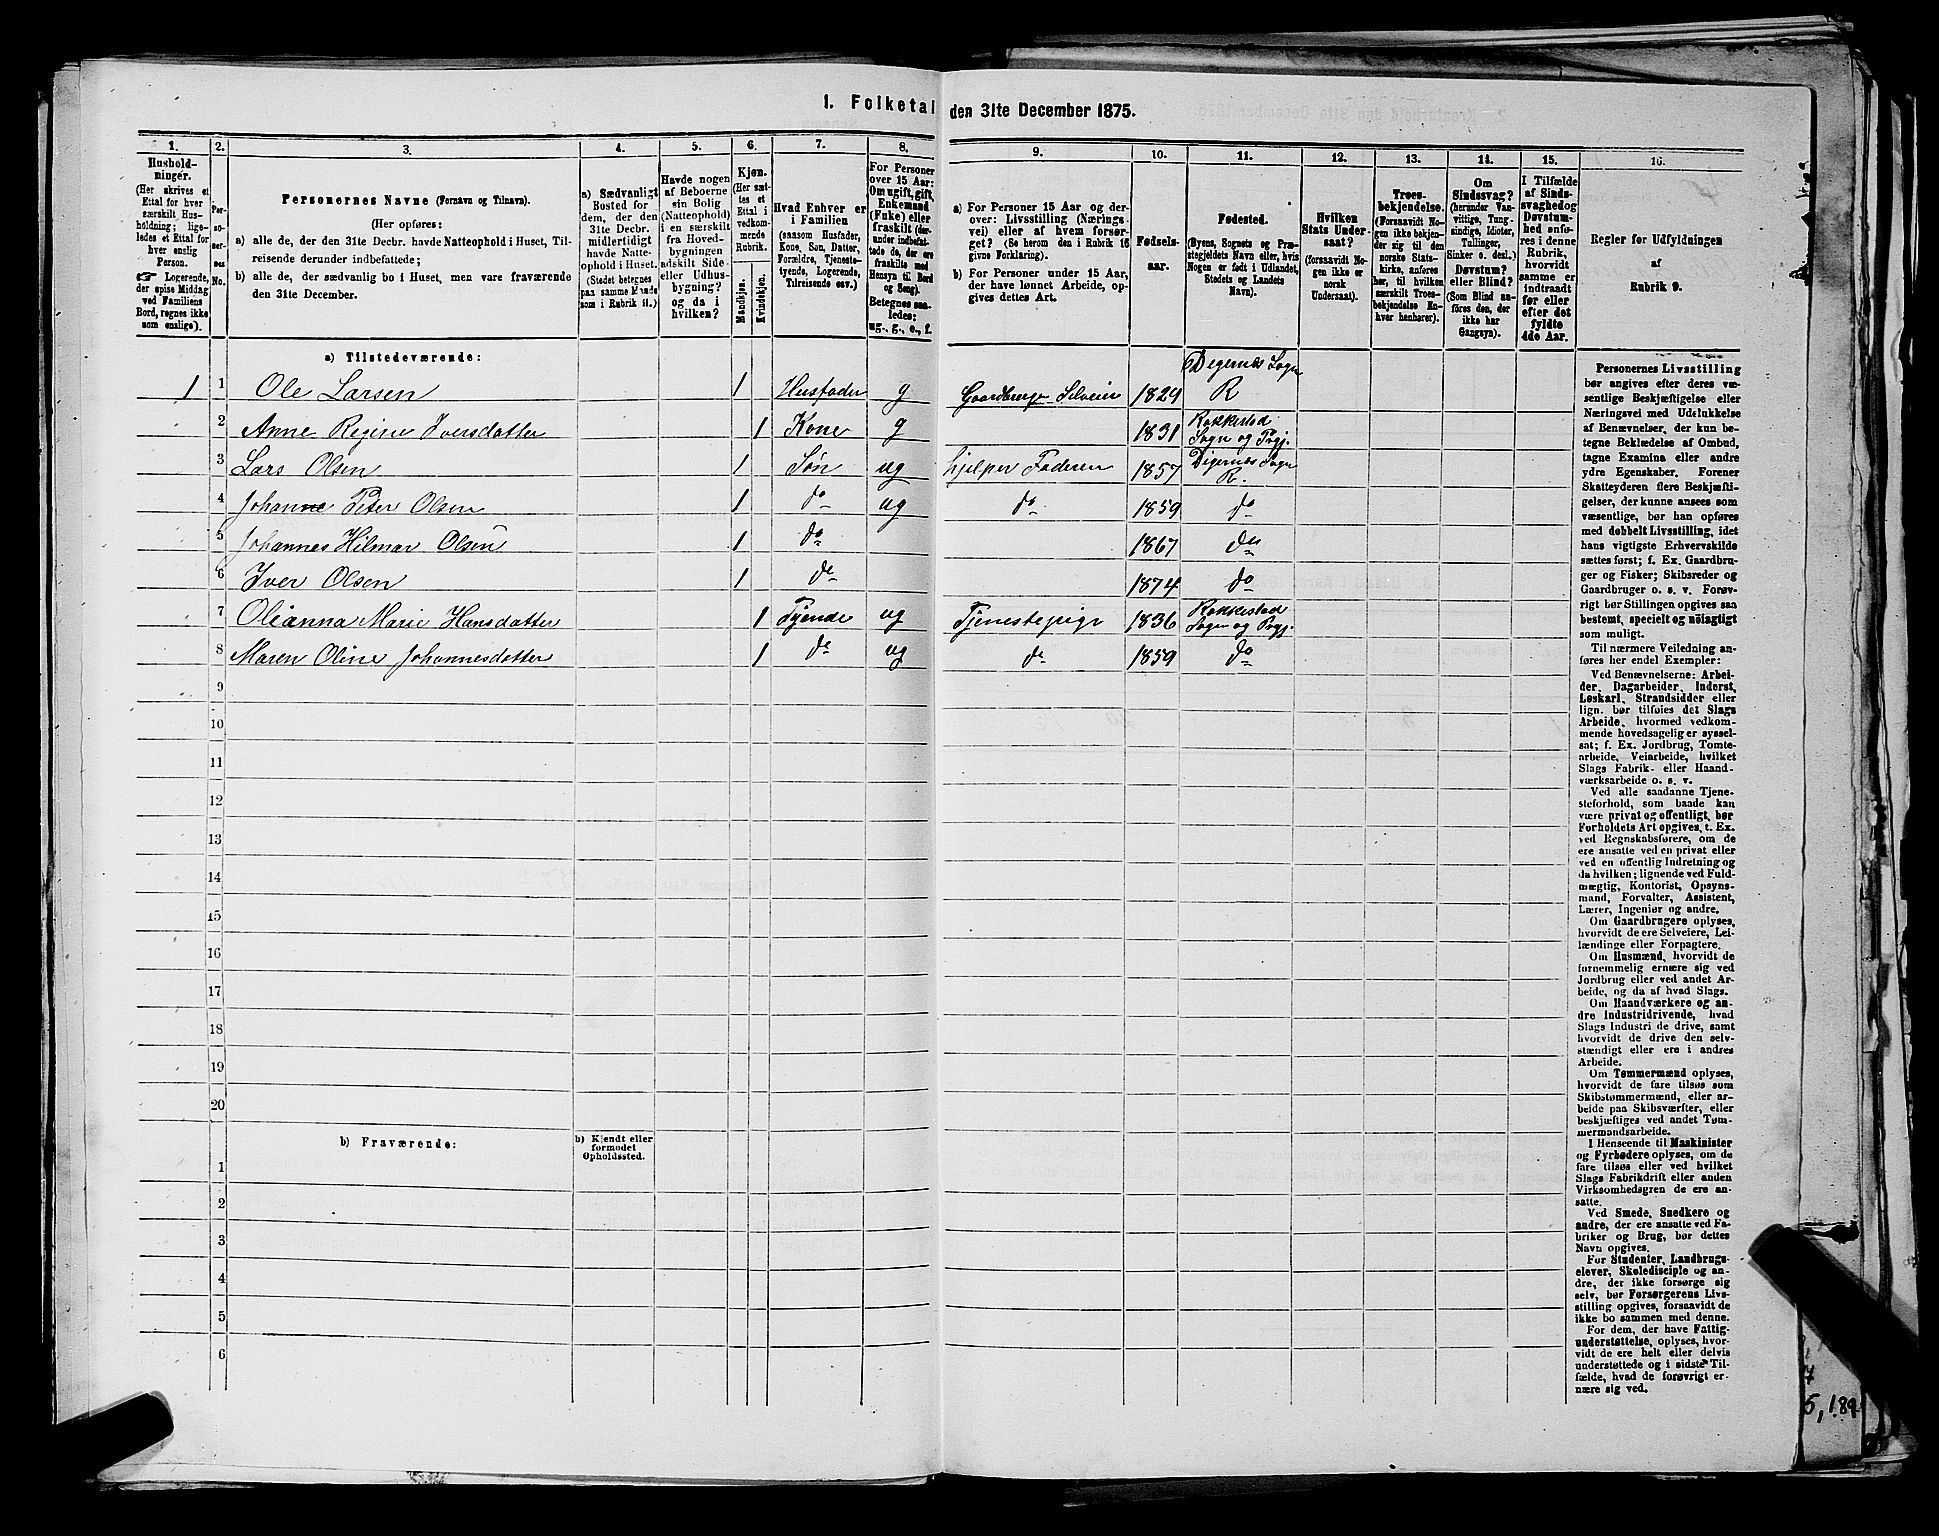 1. Folketal den 31te December 1875.
1. 2. 3. 4. 5. 6. 7. 8. 9. 10. 11. 12. 13. 14. 15. 16.
Hushold-
ninger.
(Her skrives et
Ettal for hver
særskilt Hus-
holdning; lige-
ledes et Ettal for
hver enslig
Person.
☞ Logerende,
der spise Middag
ved Familiens
Bord, regnes ikke
som enslige).
Per-
so-
ner-
nes
No.
Personernes Navne (Fornavn og Tilnavn).
(Her opføres:
a) alle de, der den 31te Decbr. havde Natteophold i Huset, Til-
reisende derunder indbefattede;
b) alle de, der sædvanlig bo i Huset, men vare fraværende
den 31te December.
a) Sædvanligt
Bosted for
dem, der den
31te Decbr.
midlertidigt
havde Natte-
ophold i Huset.
(Stedet betegnes
paa samme Maade
som i Rubrik 11.)
Havde nogen
af Beboerne
sin Bolig
(Natteophold)
i en særskilt
fra Hoved-
bygningen
adskilt Side-
eller Udhus-
bygning?
og da i
hvilken?
Kjøn.
(Her sæt-
tes et
Ettal i
vedkom-
mende
Rubrik.
Mandkjøn.
Kvindekjøn.
Hvad Enhver er
i Familien
(saasom Husfader,
Kone, Søn, Datter,
Forældre, Tjeneste-
tyende, Logerende,
Tilreisende osv.)
For Personer
over 15 Aar:
Om ugift, gift,
Enkemand
(Enke) eller
fraskilt (der-
under indbefat-
tede de, der ere
fraskilte med
Hensyn til Bord
og Seng).
Betegnes saa-
ledes:
ug., g., e., f.
a) For Personer 15 Aar og der-
over: Livsstilling (Nærings-
vei) eller af hvem forsør-
get? (Se herom den i Rubrik 16
givne Forklaring).
b) For Personer under 15 Aar,
der have lønnet Arbeide, op-
gives dettes Art.
Fødsels-
aar.
Fødested.
(Byens, Sognets og Præ-
stegjeldets Navn eller, hvis
Nogen er født i Udlandet,
Stedets og Landets
Navn).
Hvilken
Stats Under-
saat?
(forsaavidt No-
gen ikke er
norsk
Undersaat).
Troes-
bekjendelse.
(Forsaavidt No-
gen ikke bekjen-
der sig til den
norske Stats-
kirke, anføres
her, til hvilken
særskilt Troes-
bekjendelse En-
hver henhører).
Om
Sindssvag?
(herunder Van-
vittige, Tung-
sindige, Idioter,
Tullinger,
Sinker o. desl.)
Døvstum?
eller Blind?
(Som Blind an-
føres den, der
ikke har
Gangsyn).
I Tilfælde
af Sinds-
svaghed og
Døvstum-
hed anfø-
res i denne
Rubrik,
hvorvidt
samme er
indtraadt
før eller
efter det
fyldte
4de Aar.
Regler for Udfyldningen
af
Rubrik 9.
a) Tilstedeværende:
1 1 Ole Larsen 1 Husfader g Gaardbruger Selveier 1829 Degernes Sogn R
2 Anne Regine Iversdatter 1 Kone g 1831 Rakkestad Sogn og Prgj.
3 Lars Olsen 1 Søn ug hjelper Faderen 1857 Digernes Sogn R.
4 Johan Peter Olsen 1 do ug do 1859 do
5 Johannes Hilmar Olsen 1 do 1867 do
6 Iver Olsen 1 do 1874 do
7 Olianna Marie Hansdatter 1 Tyende ug Tjenestepige 1836 Rakkestad Sogn og Prgj.
8 Maren Oline Johannesdatter 1 do ug do 1859 do
9
10
11
12
13
14
15
16
17
18
19
20
b) Fraværende:
b) Kjendt eller
formodet
Opholdssted.
1
2
3
4
5
6
Personernes Livsstilling
bør angives efter deres væ-
sentlige Beskjæftigelse eller
Næringsvei med Udelukkelse
af Benævnelser, der kun be-
tegne Beklædelse af Ombud,
tagne Examina eller andre
ydre Egenskaber. Forener
Skatteyderen flere Beskjæfti-
gelser, der kunne ansees som
væsentlige, bør han opføres
med dobbelt Livsstilling, idet
hans vigtigste Erhvervskilde
sættes først; f. Ex. Gaardbru-
ger og Fisker; Skibsreder og
Gaardbruger o. s. v. Forøv-
rigt bør Stillingen opgives saa
bestemt, specielt og nøiagtigt
som muligt.
Til nærmere Veiledning an-
føres her endel Exempler:
Ved Benævnelserne: Arbei-
der, Dagarbeider, Inderst,
Løskarl, Strandsidder eller
lign. bør tilføies det Slags
Arbeide, hvormed vedkom-
mende hovedsagelig er syssel-
sat; f. Ex. Jordbrug, Tomte-
arbeide, Veiarbeide, hvilket
Slags Fabrik- eller Haand-
værksarbeide o. s. v.
Ved alle saadanne Tjene-
steforhold, som baade kan
være privat og offentligt, bør
Forholdets Art opgives, t. Ex.
ved Regnskabsførere, om de
ere ansatte ved en privat eller
ved en offentlig Indretning og
da hvilken; lignende ved Fuld-
mægtig, Kontorist, Opsyns-
mand, Forvalter, Assistent,
Lærer, Ingeniør og andre.
Om Gaardbrugere oplyses,
hvorvidt de ere Selveiere, Lei-
lændinge eller Forpagtere.
Om Husmænd, hvorvidt de
fornemmelig ernære sig ved
Jordbrug eller ved andet Ar-
beide, og da af hvad Slags.
Om Haandværkere og an-
dre Industridrivende, hvad
Slags Industri de drive, samt
hvorvidt de drive den selv-
stændigt eller ere i andres
Arbeide.
Om Tømmermænd oplyses,
hvorvidt de fare tilsøs som
Skibstømmermænd, eller ar-
beide paa Skibsværfter, eller
beskjæftiges ved andet Tøm-
mermandsarbeide.
I Henseende til Maskinister
og Fyrbødere oplyses, om de
fare tilsøs eller ved hvilket
Slags Fabrikdrift eller anden
Virksomhedsgren de ere an-
satte.
Ved Smede, Snedkere og
andre, der ere ansatte ved Fa-
briker og Brug, bør dettes
Navn opgives.
For Studenter, Landbrugs-
elever, Skoledisciple og an-
dre, der ikke forsørge sig
selv, bør Forsørgerens Livs-
stilling opgives, forsaavidt de
ikke bo sammen med denne.
For dem, der have Fattig-
understøttelse, oplyses, hvor-
vidt de ere helt eller delvis
understøttede og i sidste Til-
fælde, hvad de forøvrigt er-
nære sig ved.